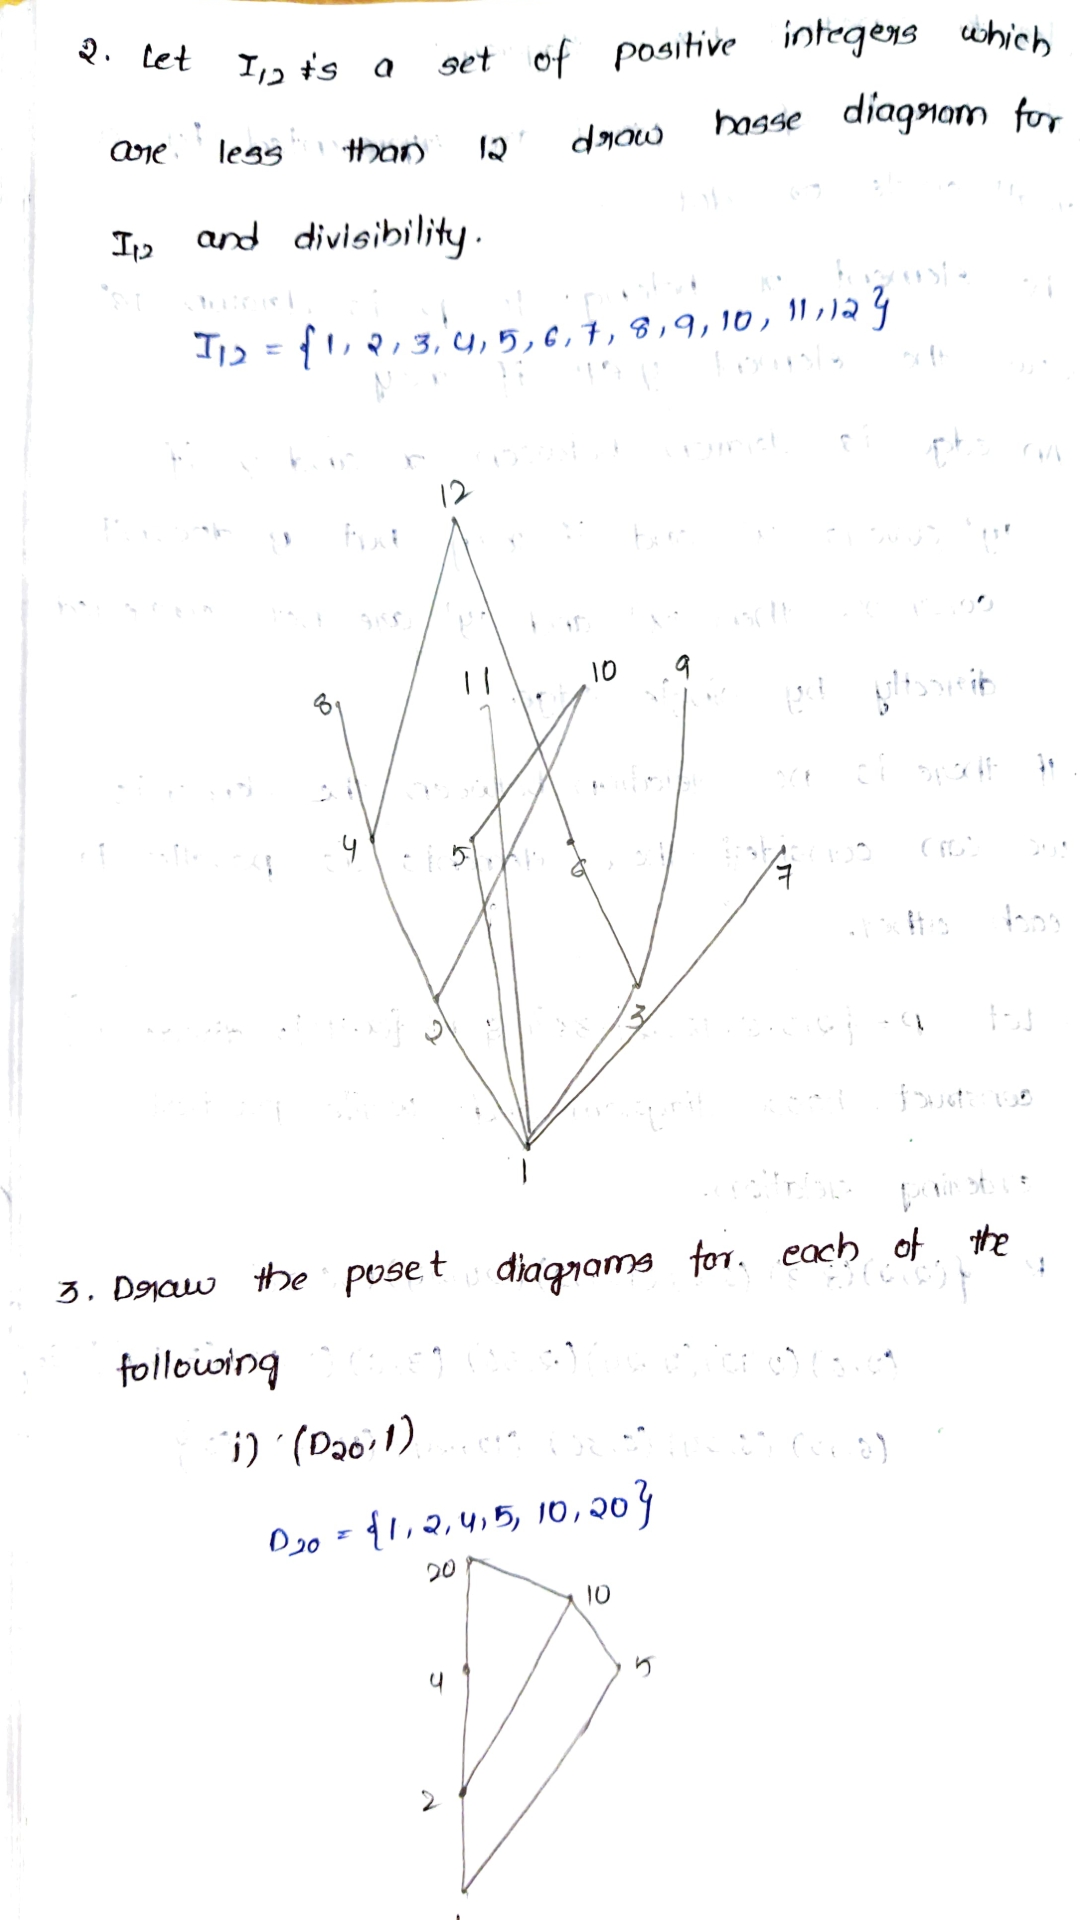 2. Let I12 is a set of positive integers which
are less than 12 draw hasse diagram for
I12 and divisibility.
I12 = {1, 2, 3, 4, 5, 6, 7, 8, 9, 10, 11, 12}
12
8
11
10
9
4
5
6
7
2
3
1
3. Draw the poset diagrams for each of the
following
i) (D20, 1)
D20 = {1, 2, 4, 5, 10, 20}
20
10
4
5
2